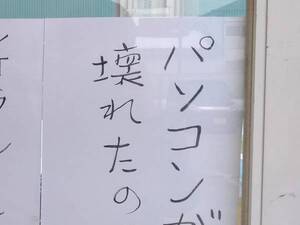 パソコンが
壊れたの